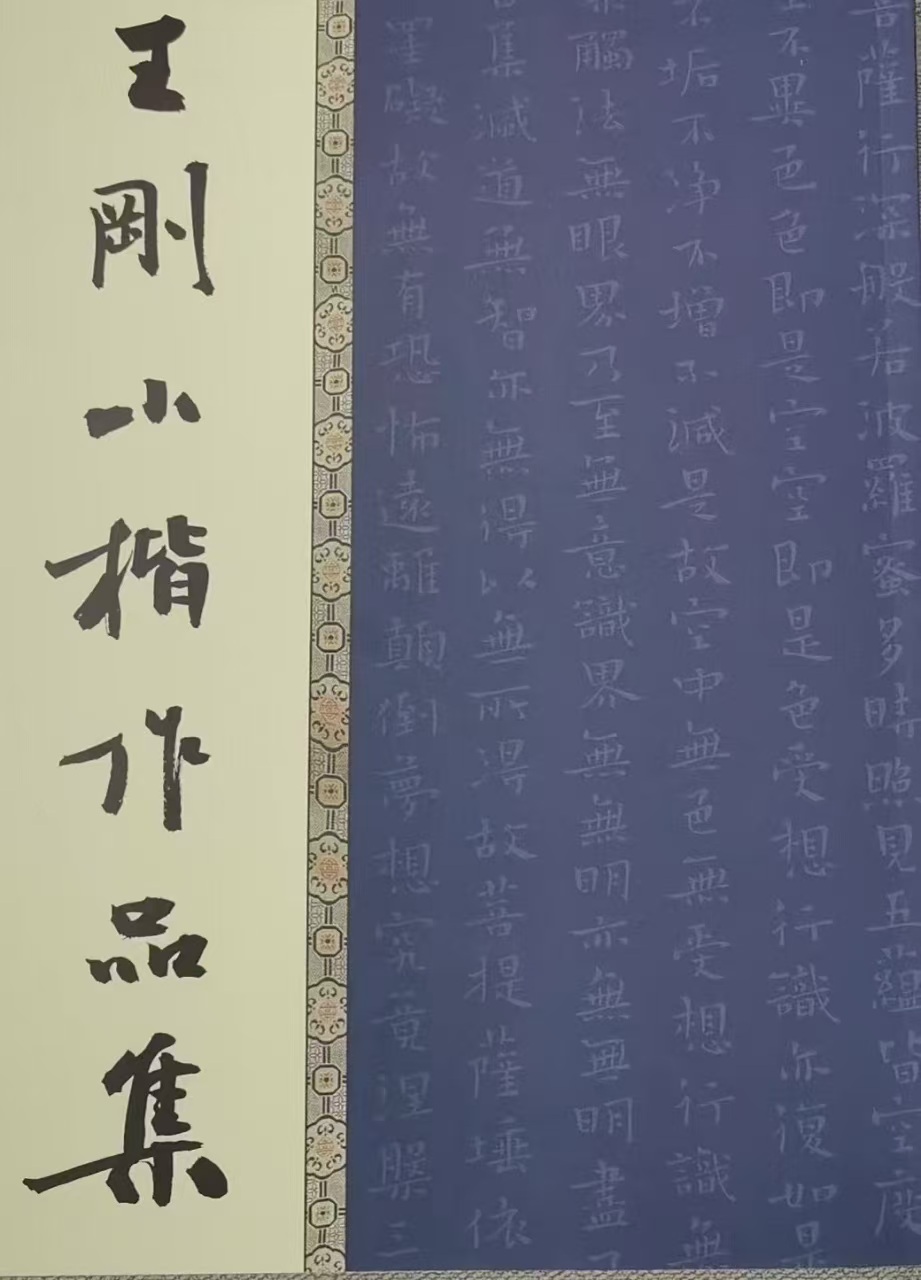 菩薩行深般若波羅蜜多時照見五蘊皆空度
不異色色即是空空即是色受想行識亦復如是
不垢不淨不增不減是故空中無色無受想行識無
觸法無眼界乃至無意識界無無明亦無無明盡
集滅道無智亦無得以無所得故菩提薩埵依
罣礙故無有恐怖遠離顛倒夢想究竟涅槃三
王剛小楷作品集